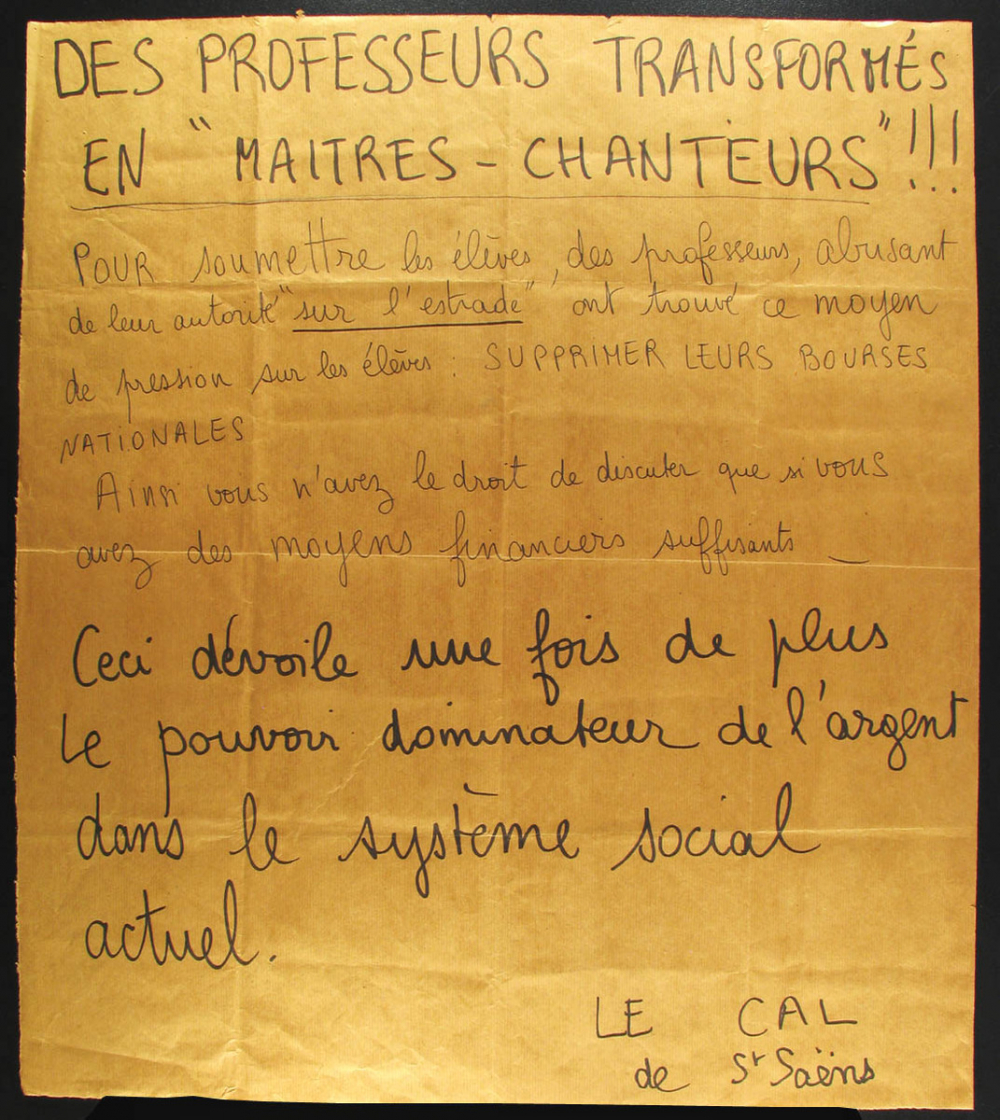 DES PROFESSEURS TRANSFORMÉS
EN "MAITRES-CHANTEURS"!!!
POUR soumettre les élèves, des professeurs, abusant
de leur autorité "sur l'estrade" ont trouvé ce moyen
de pression sur les élèves : SUPPRIMER LEURS BOURSES
NATIONALES
Ainsi vous n'avez le droit de discuter que si vous
avez des moyens financiers suffisants _
Ceci dévoile une fois de plus
le pouvoir dominateur de l'argent
dans le système social
actuel.
LE CAL
de St Saëns